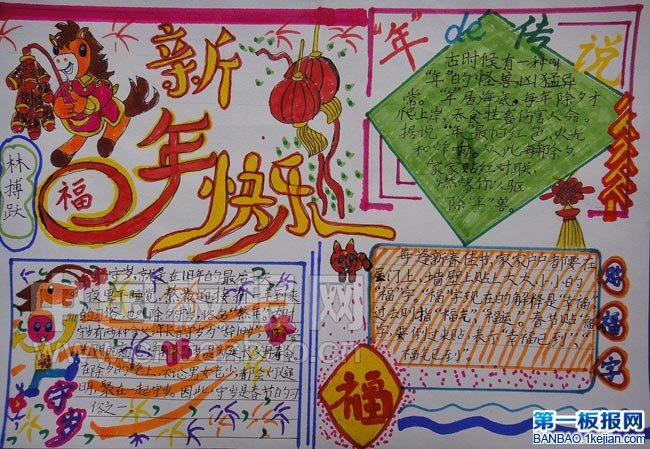 新
年快乐
福
林搏跃
"年"de传说
古时候有一种叫
"年"的怪兽凶猛异
常。"年"居海底,每年除夕才
爬上岸,吞食牲畜伤害人命。
据说"年"最怕红色、火光
和炸响,从此每年除夕
家家贴红对联、
燃爆竹以驱
除"年"兽。
每逢新春佳节,家家户户都要在
屋门上、墙壁上贴上大大小小的
"福"字。"福"字现在的解释是"幸福"
过去则指"福气"、"福运"。春节贴"福"
字,要倒过来贴,表示"幸福已到"、"
福气已到"。
贴福字
福
守岁
守岁,就是在旧年的最后一
夜里不睡觉,熬夜迎接新一年到来
的习俗,也叫除夕守岁,俗名"熬年"
在除夕的晚上,不论男女老少,都会灯火通
明,聚在一起守岁。因此,守岁是春节的习
俗之一
第一板报网
BANBAO.1kejian.com